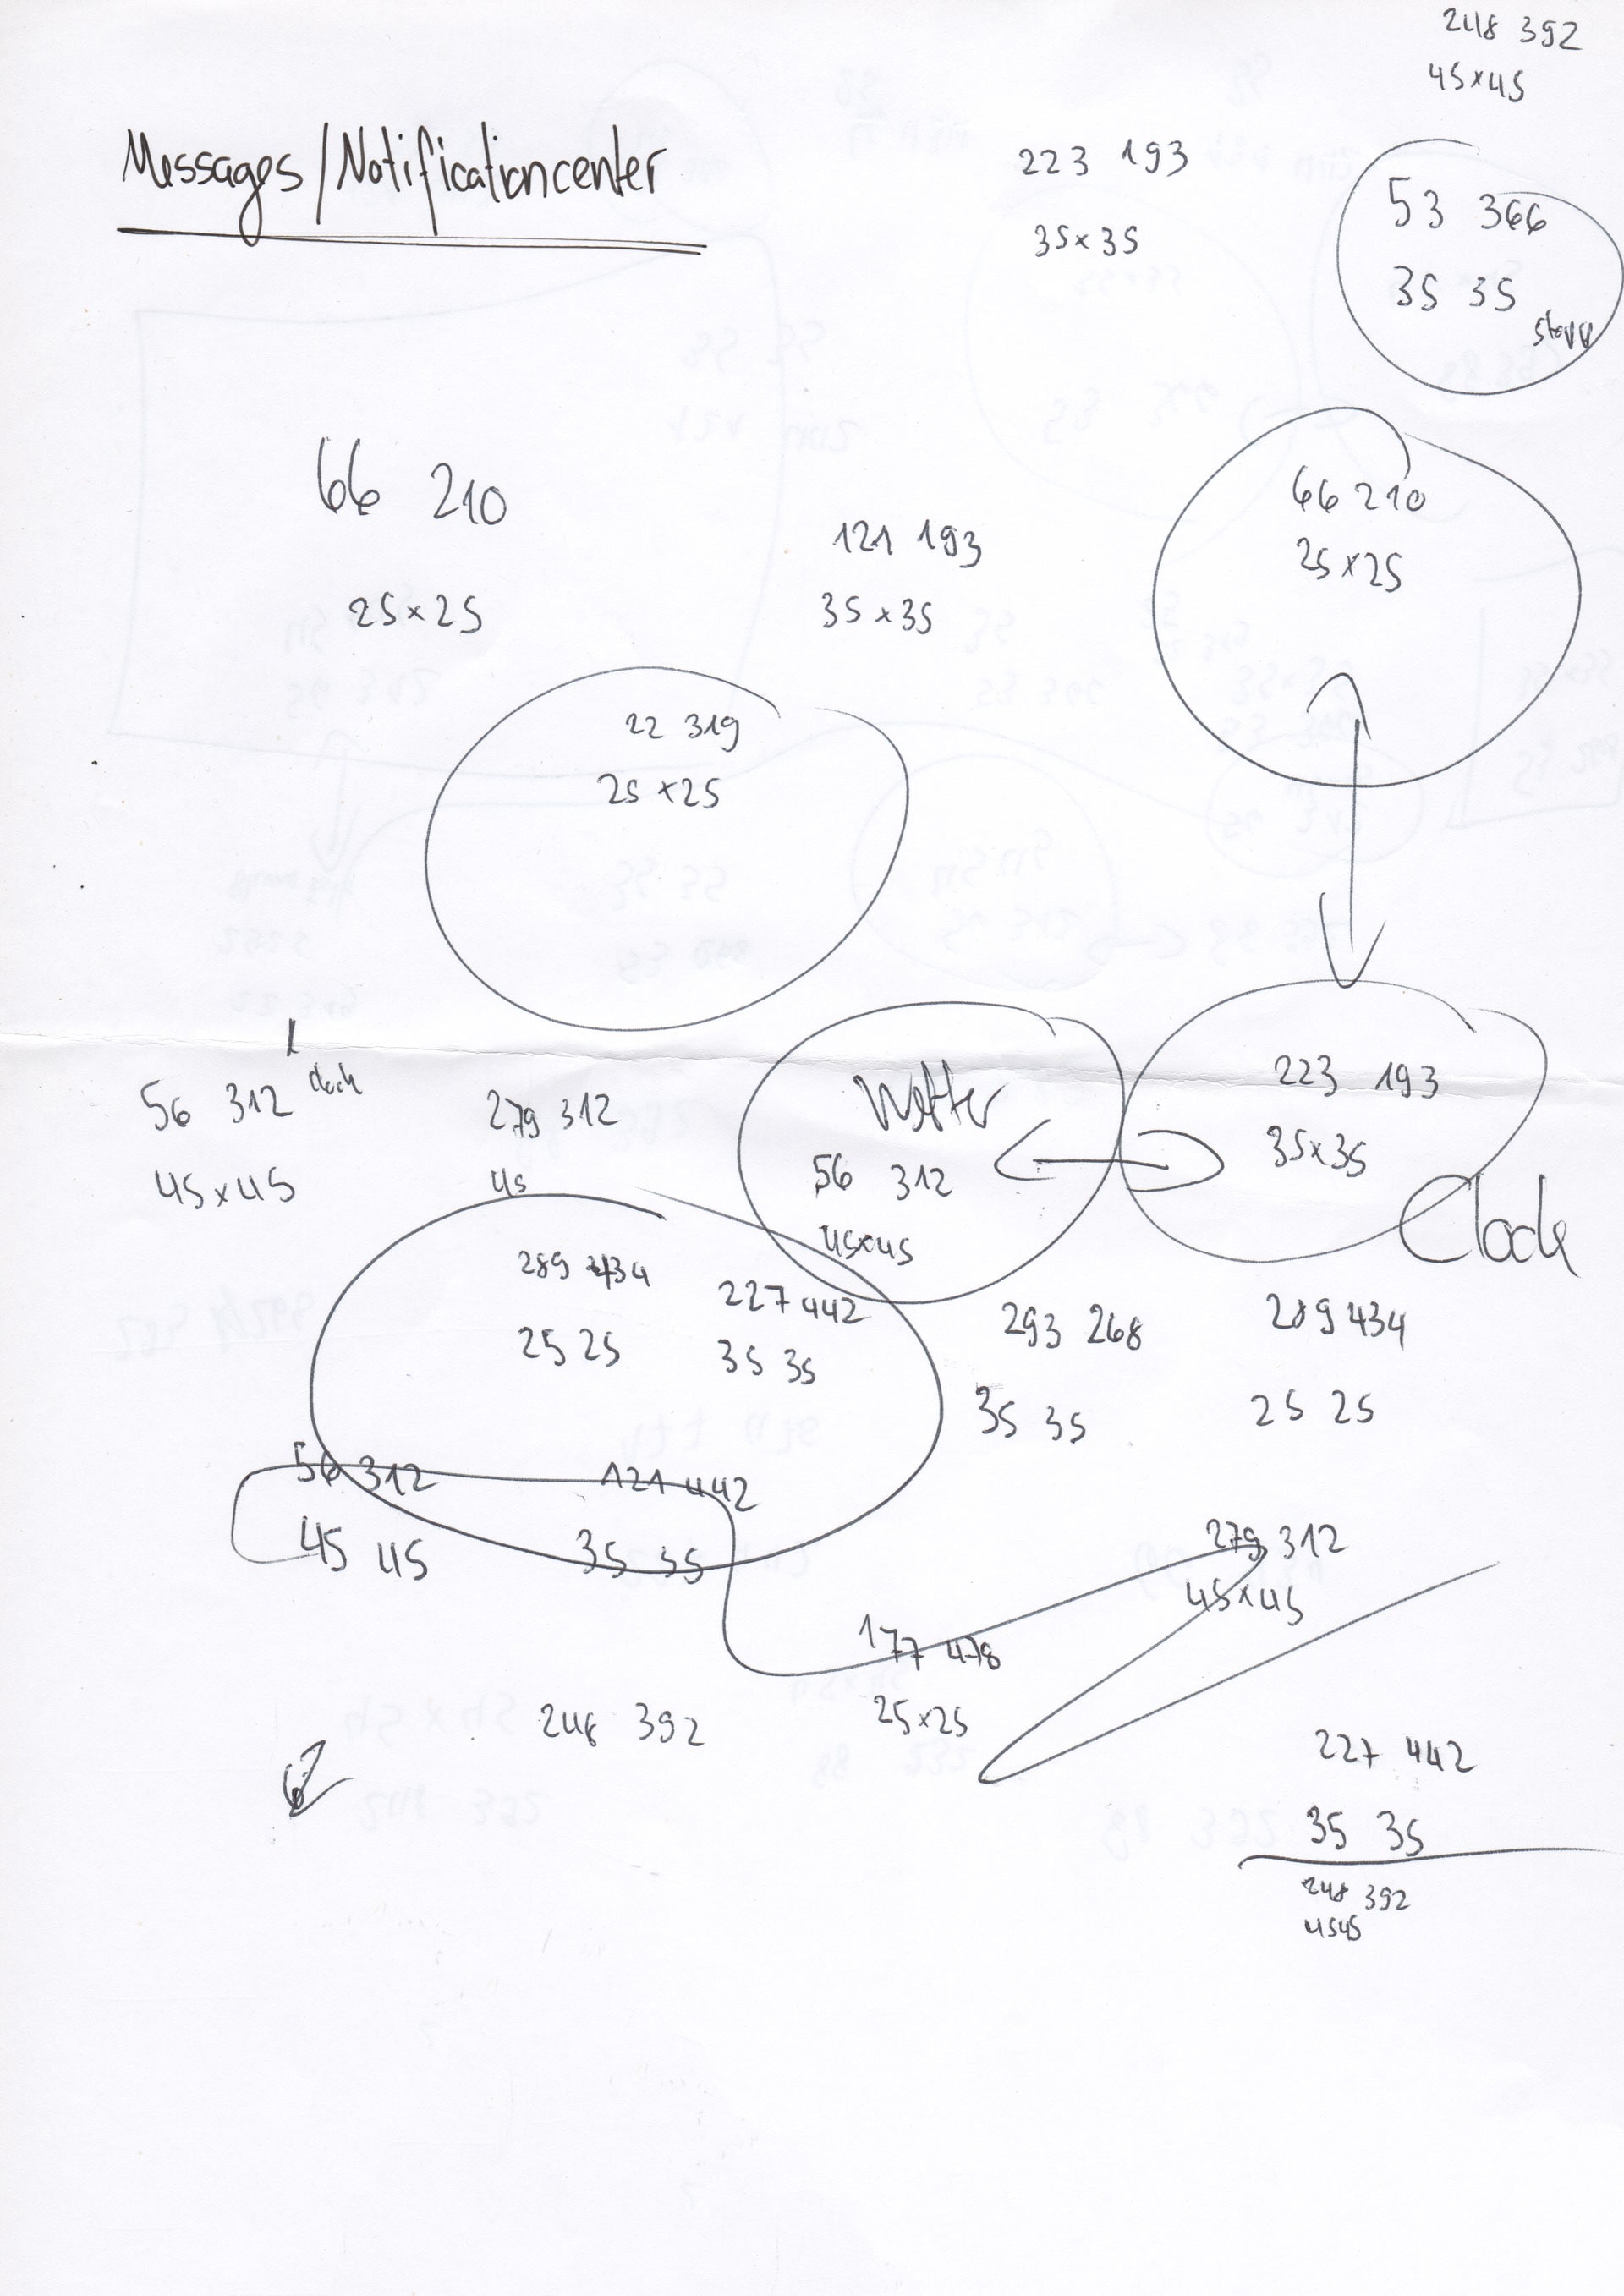 248 392
45×45
Messages/Notificationcenter
223 193
35×35
53 366
35 35
starr
66 210
25×25
121 193
35×35
66 210
25×25
22 319
25×25
56 312 clock
45×45
279 312
45
Wetter
56 312
45×45
223 193
35×35
Clock
289 434
25 25
227 442
35 35
293 268
35 35
289 434
25 25
56 312
45 45
121 442
35 35
279 312
45×45
177 478
25×25
248 392
227 442
35 35
248 392
4545